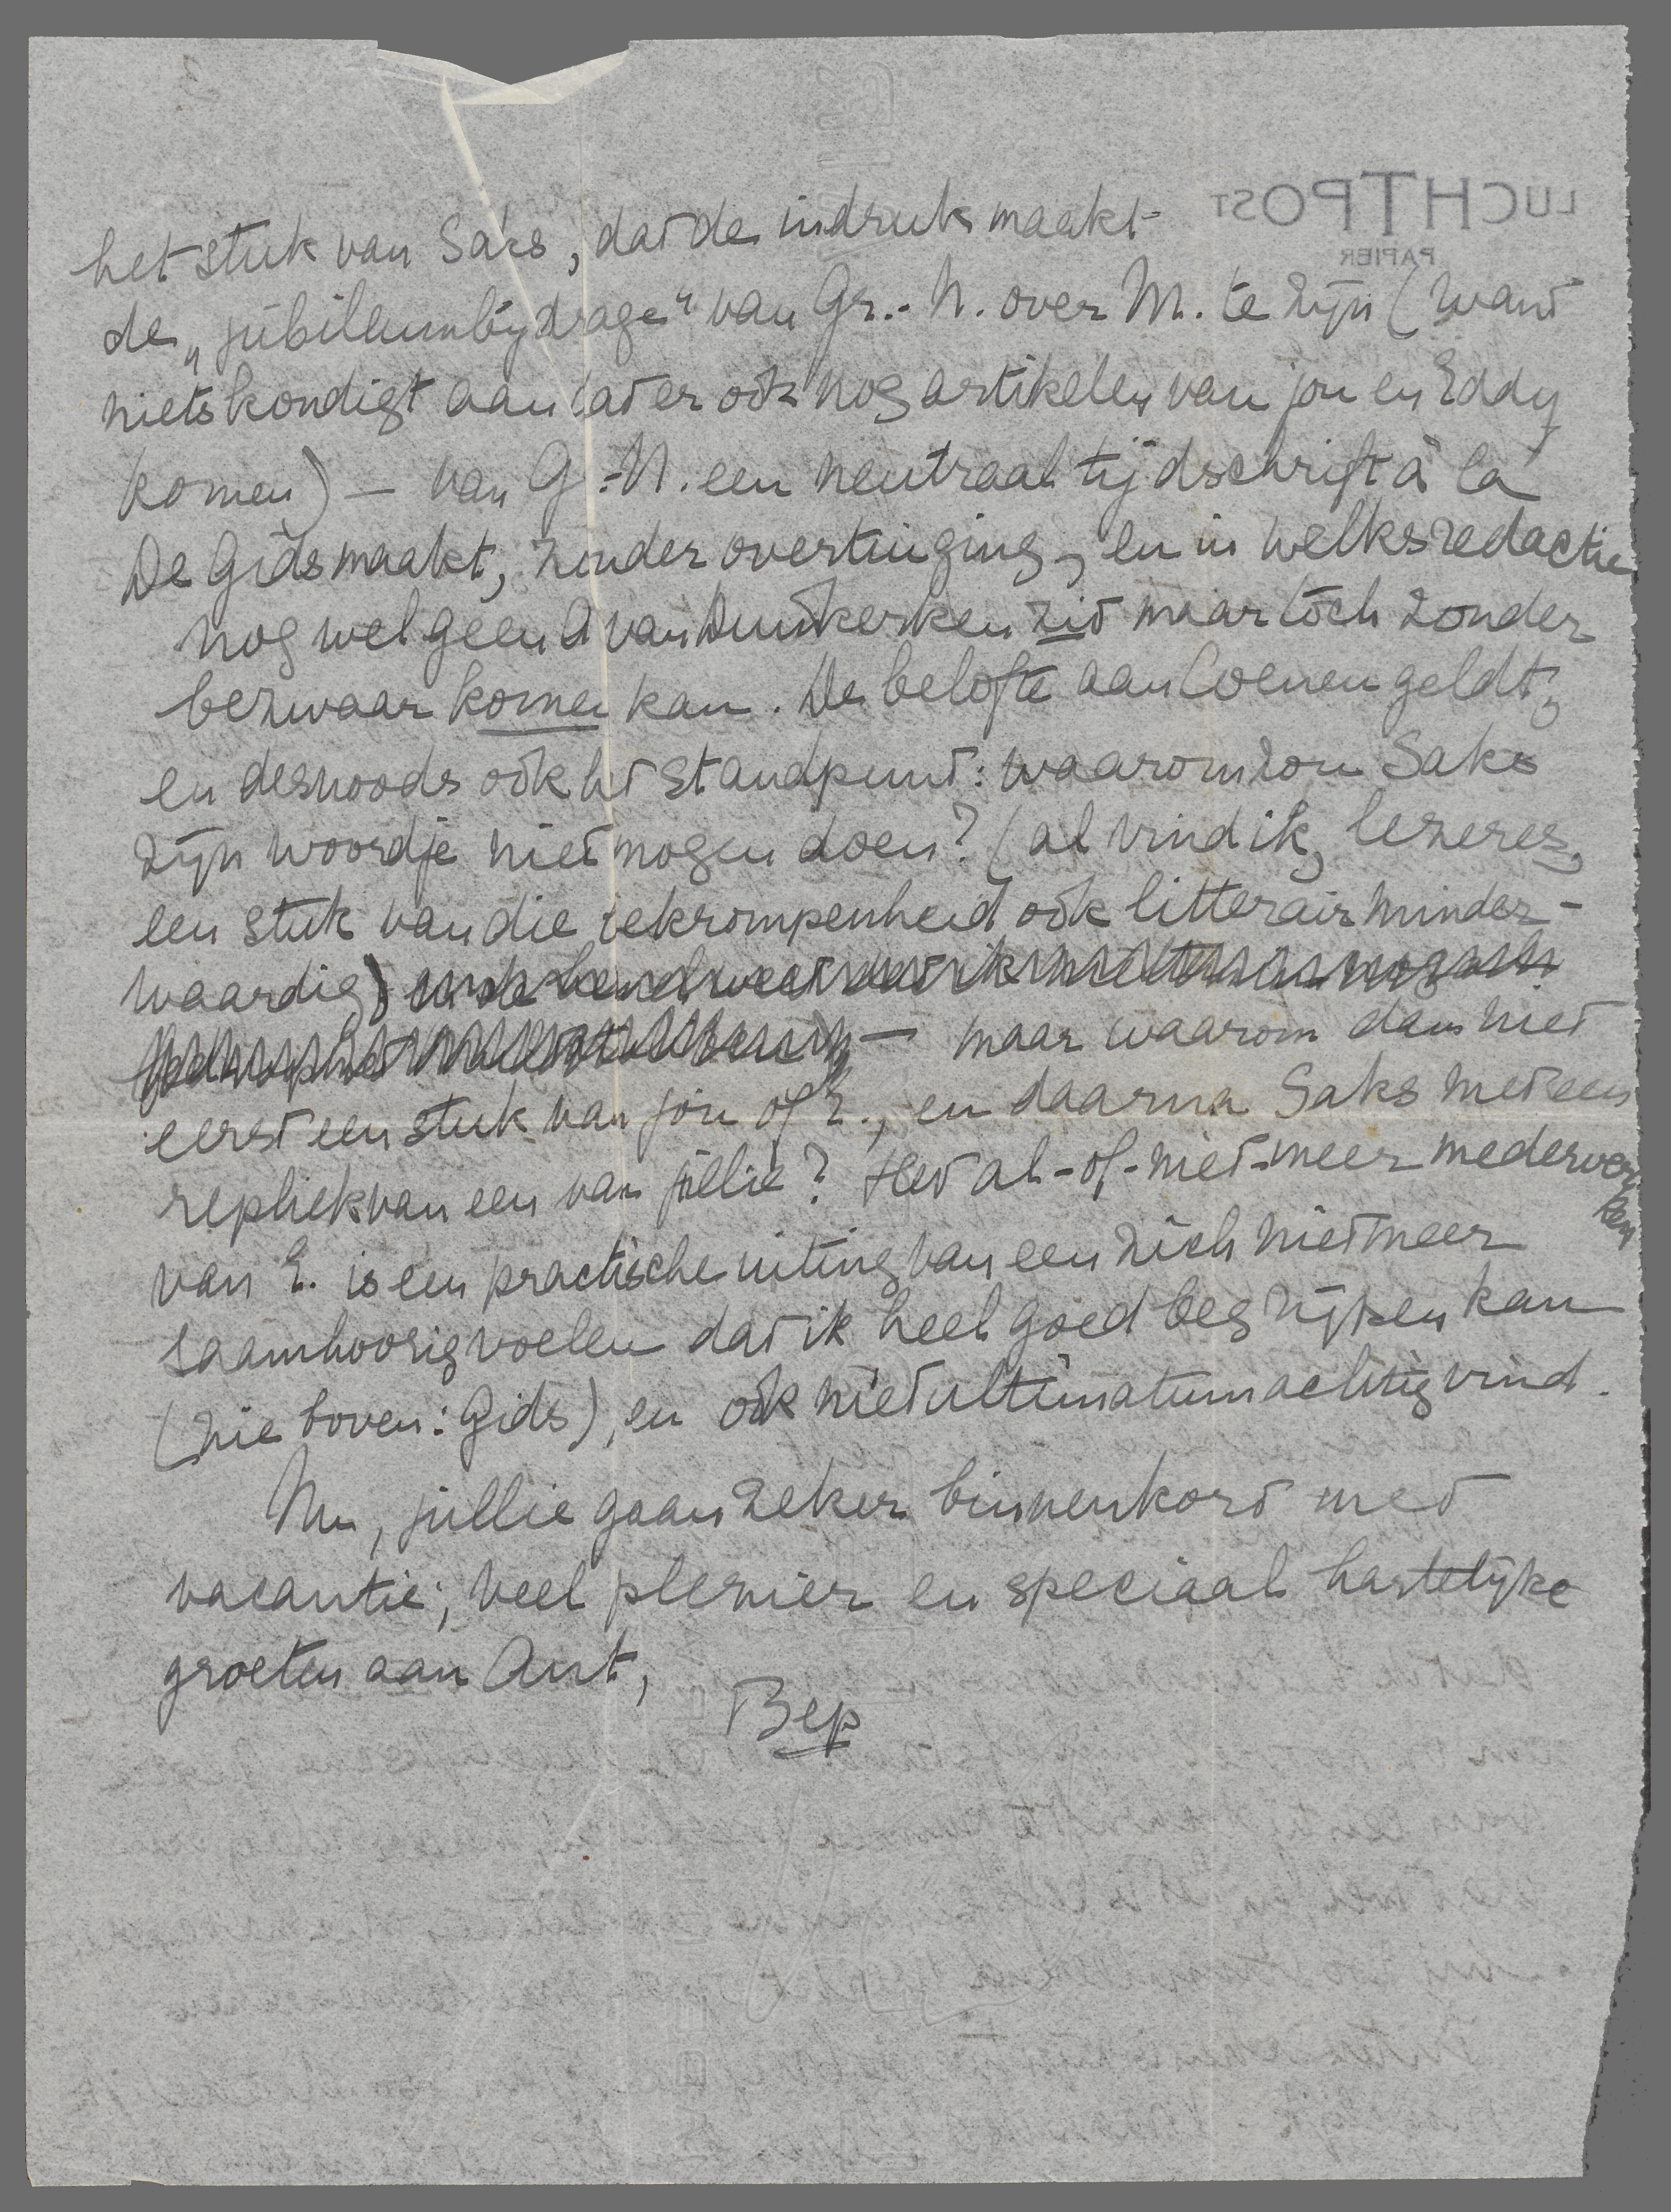 LUCHTPOST
PAPIER
het stuk van Saks, dat de indruk maakt
de „jubileumbijdrage" van Gr.-N. over M. te zijn (want
niets kondigt aan dat er ook nog artikelen van jou en Eddy
komen) — van G.-N. een neutraal tijdschrift à la
De Gids maakt, zonder overtuiging, en in welks redactie
nog wel geen A van Duinkerken zit maar toch zonder
bezwaar komen kan. De belofte aan Coenen geldt,
en desnoods ook het standpunt: waarom zou Saks
zijn woordje niet mogen doen? (al vind ik, lezeres,
een stuk van die bekrompenheid ook litterair minder-
waardig)
— maar waarom dan niet
eerst een stuk van jou of E., en daarna Saks met een
repliek van een van jullie? Het al-of-niet-meer medewerken
van E. is een practische uiting van een zich niet meer
saamhoorig voelen dat ik heel goed begrijpen kan
(zie boven: Gids), en ook niet ultimatumachtig vind.
Nu, jullie gaan zeker binnenkort met
vacantie; veel plezier en speciaal hartelijke
groeten aan Ant,
Bep